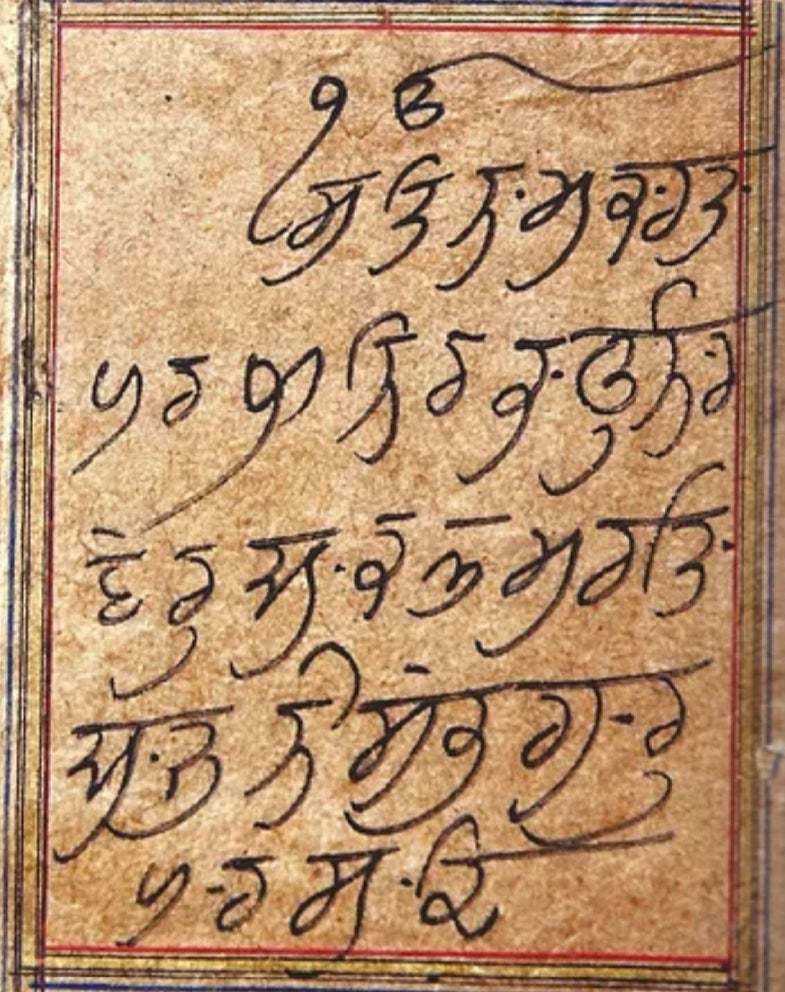 ੴ
ਸਤਿ ਨਾਮੁ ਕਰਤਾ
ਪੁਰਖੁ ਨਿਰਭਉ ਨਿਰ
ਵੈਰੁ ਅਕਾਲ ਮੂਰਤਿ
ਅਜੂਨੀ ਸੈਭੰ ਗੁਰ
ਪਰਸਾਦਿ